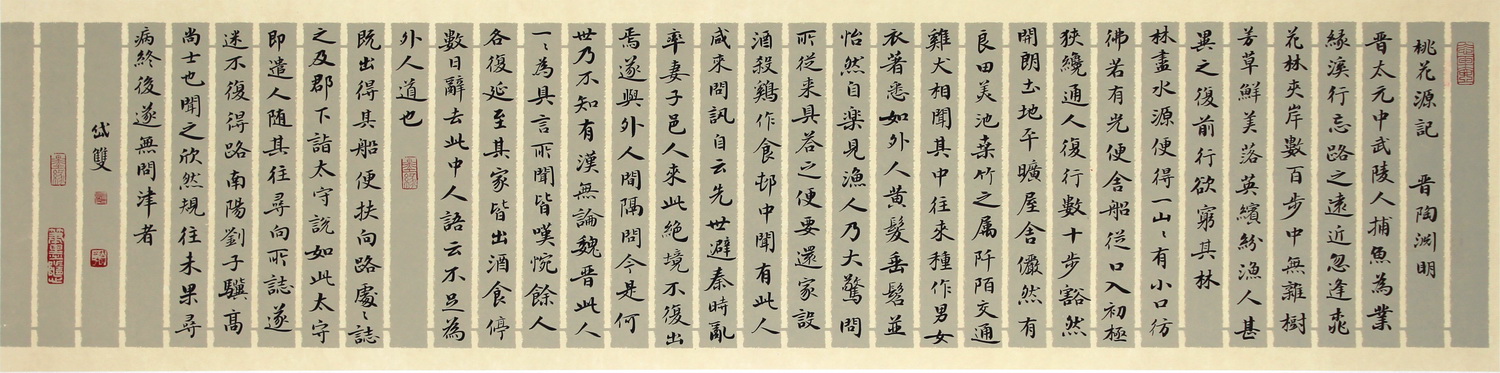 桃花源記 晉陶淵明
晉太元中武陵人捕魚為業
緣溪行忘路之遠近忽逢桃
花林夾岸數百步中無雜樹
芳草鮮美落英繽紛漁人甚
異之復前行欲窮其林
林盡水源便得一山〻有小口彷
彿若有光便舍船從口入初極
狹纔通人復行數十步豁然
開朗土地平曠屋舍儼然有
良田美池桑竹之属阡陌交通
雞犬相聞其中往来種作男女
衣著悉如外人黃髮垂髫並
怡然自樂見漁人乃大驚問
所從来具答之便要還家設
酒殺鷄作食邨中聞有此人
咸来問訊自云先世避秦時亂
率妻子邑人来此絕境不復出
焉遂與外人間隔問今是何
世乃不知有漢無論魏晉此人
一〻為具言所聞皆嘆惋餘人
各復延至其家皆出酒食停
數日辭去此中人語云不足為
外人道也
既出得其船便扶向路處〻誌
之及郡下詣太守說如此太守
即遣人随其往尋向所誌遂
迷不復得路南陽劉子驥高
尚士也聞之欣然規往未果尋
病終後遂無問津者
岱雙